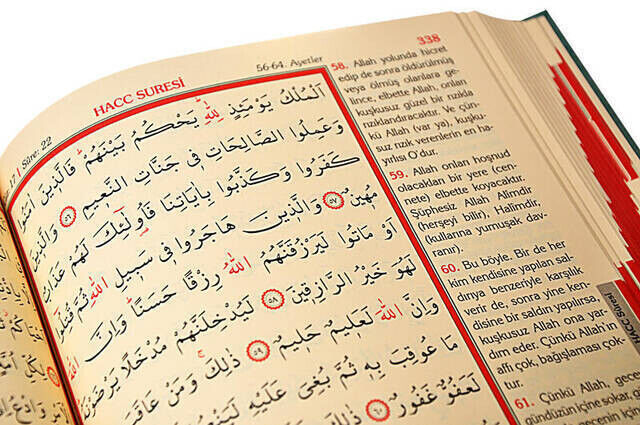 17 / Sûre: 22
HACC SURESİ
56-64. Ayetler
338
اَلْمُلْكُ يَوْمَئِذٍ لِلّٰهِ يَحْكُمُ بَيْنَهُمْ فَالَّذِينَ اٰمَنُوا
وَعَمِلُوا الصَّالِحَاتِ فِى جَنَّاتِ النَّعِيمِ ﴿٥٦﴾ وَالَّذِينَ
كَفَرُوا وَكَذَّبُوا بِاٰيَاتِنَا فَاُولٰئِكَ لَهُمْ عَذَابٌ
مُهِينٌ ﴿٥٧﴾ وَالَّذِينَ هَاجَرُوا فِى سَبِيلِ اللّٰهِ ثُمَّ قُتِلُوا
اَوْ مَاتُوا لَيَرْزُقَنَّهُمُ اللّٰهُ رِزْقًا حَسَنًا وَاِنَّ اللّٰهَ
لَهُوَ خَيْرُ الرَّازِقِينَ ﴿٥٨﴾ لَيُدْخِلَنَّهُمْ مُدْخَلًا يَرْضَوْنَهُ
وَاِنَّ اللّٰهَ لَعَلِيمٌ حَلِيمٌ ﴿٥٩﴾ ذٰلِكَ وَمَنْ عَاقَبَ
مَا عُوقِبَ بِهِ ثُمَّ بُغِىَ عَلَيْهِ
لَعَفُوٌّ غَفُورٌ ﴿٦٠﴾ ذٰلِكَ
58. Allah yolunda hicret
edip de sonra öldürülmüş
veya ölmüş olanlara ge-
lince, elbette Allah, onları
kuşkusuz güzel bir rızıkla
rızıklandıracaktır. Ve çün-
kü Allah (var ya), kuşku-
suz rızık verenlerin en ha-
yırlısı O'dur.
59. Allah onları hoşnud
olacakları bir yere (cen-
nete) elbette koyacaktır.
Şüphesiz Allah Alîmdir
(herşeyi bilir), Halîmdir,
(kullarına yumuşak dav-
ranır).
60. Bu böyle. Bir de her
kim kendisine yapılan sal-
dırıya benzeriyle karşılık
verir de, sonra yine ken-
disine bir saldırı yapılırsa,
kuşkusuz Allah ona yar-
dım eder. Çünkü Allah'ın
affı çok, bağışlaması çok-
tur.
61. Çünkü Allah, geceyi
gündüzün içine sokar,
Hacc Sûresi